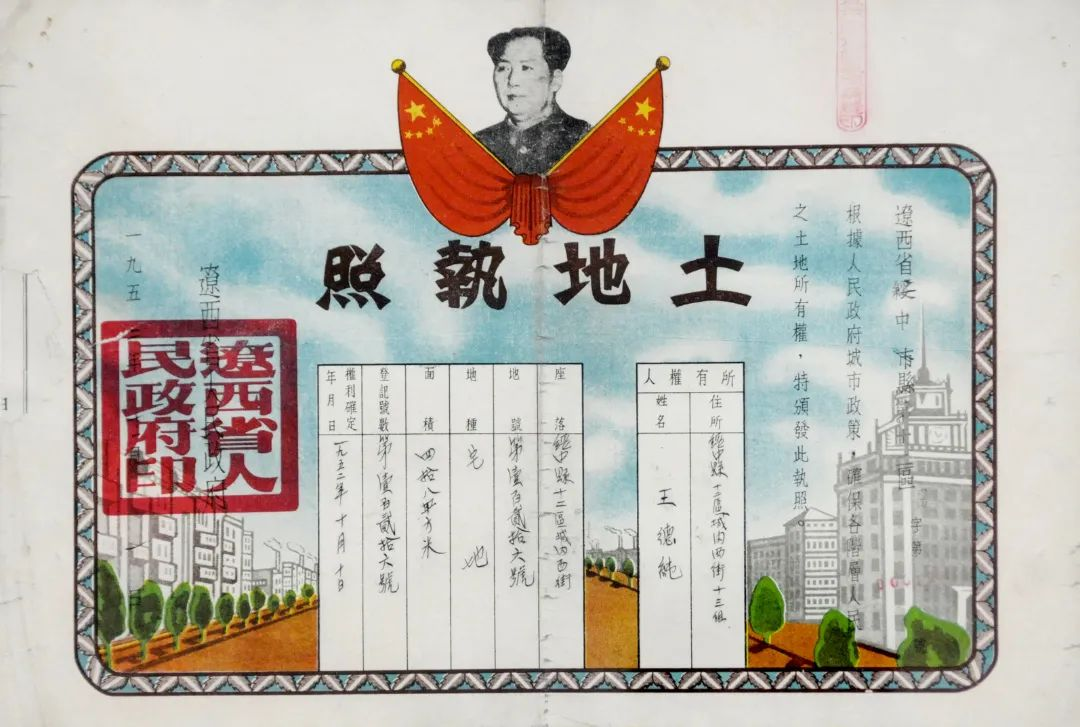 土地執照
遼西省綏中市縣
區
字第
根據人民政府城市政策,確保各階層人民
之土地所有權,特頒發此執照。
所有權人
住所
綏中縣十二區城內西街十三組
姓名
王德純
座落
綏中縣十二區城內西街
地號
第壹百貳拾六號
地種
宅地
面積
四拾八平方米
登記號數
第壹百貳拾六號
權利確定年月日
一九五二年十月十日
遼西省人民政府
遼西省人
民政府印
一九五二年